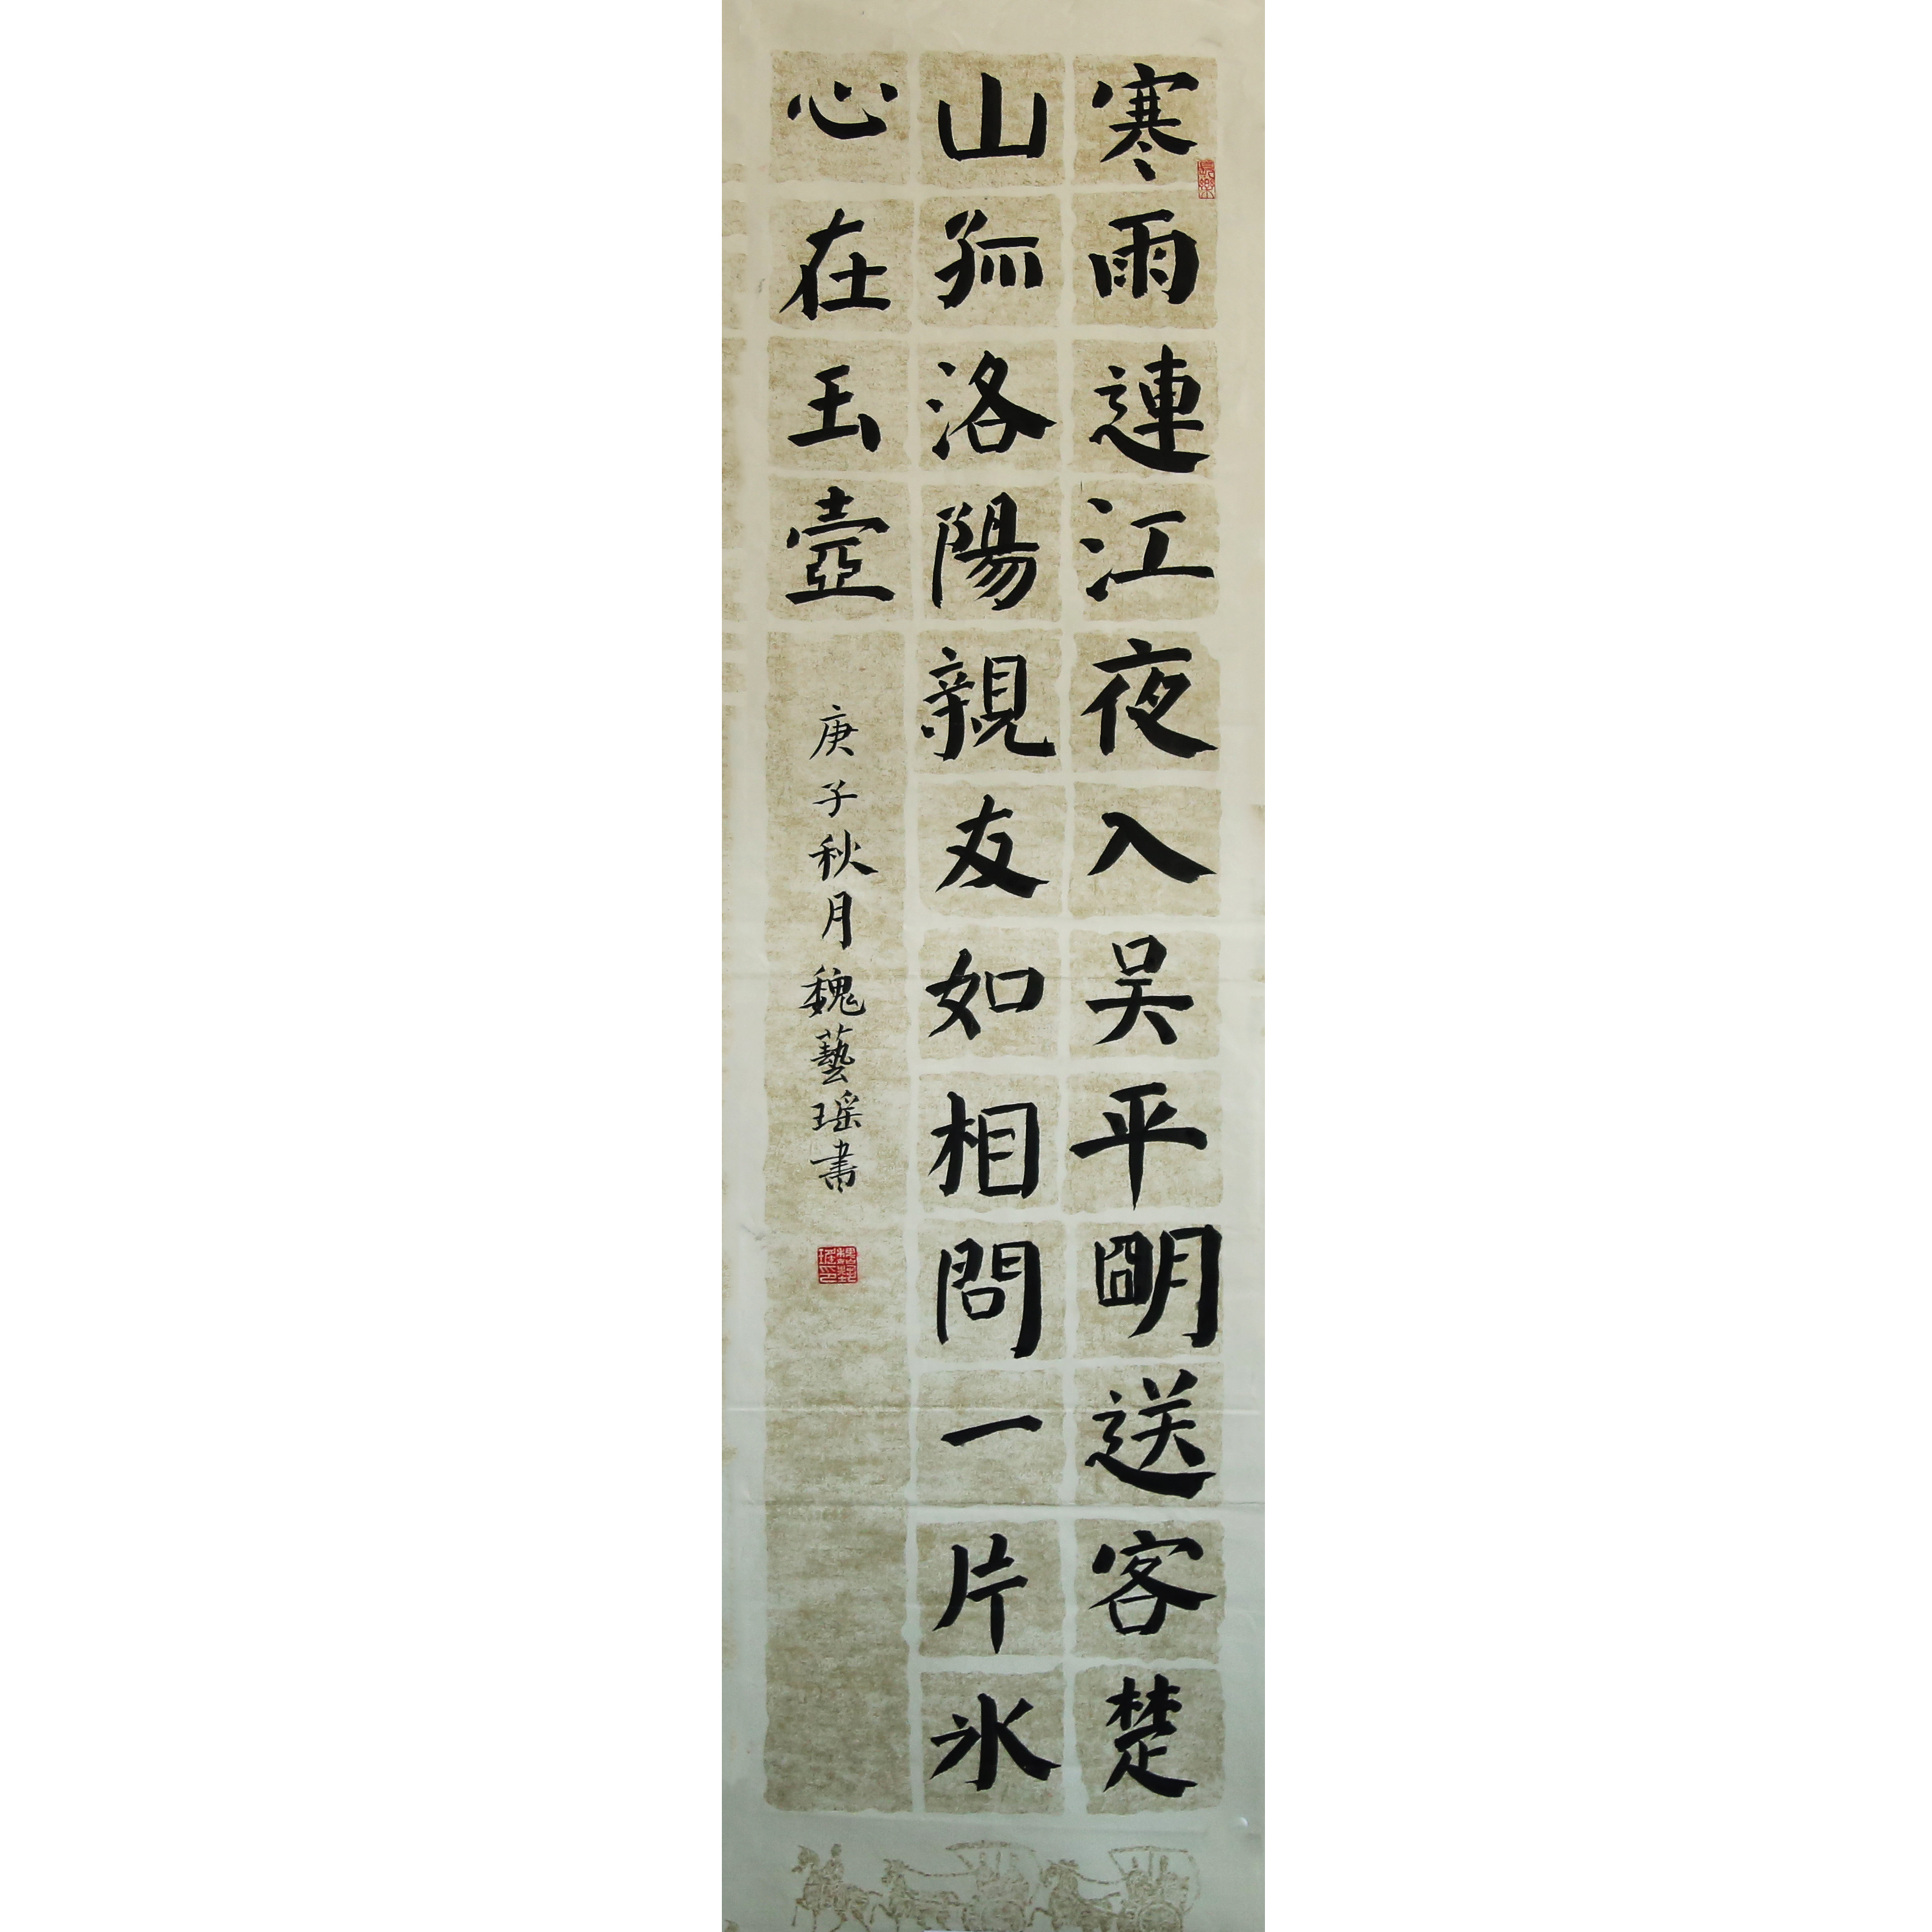 寒雨連江夜入吴平明送客楚
山孤洛陽親友如相問一片冰
心在玉壺
庚子秋月魏藝瑶書